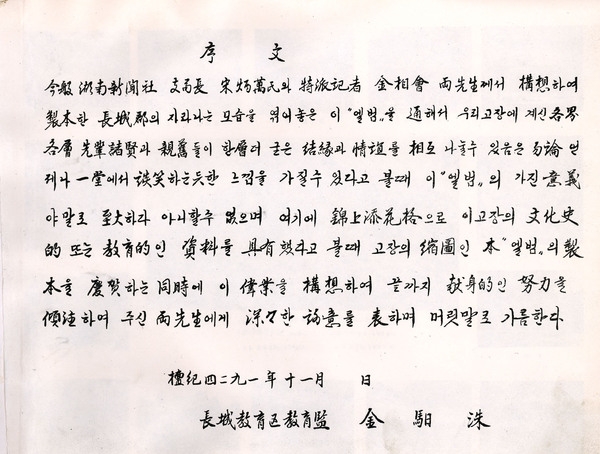 序文
今般 湖南新聞社 支局長 宋炳萬氏와 特派記者 金相會 両先生께서 構想하여
製本한 長城郡의 자라나는 모습을 엮어놓은 이 "앨범"을 通해서 우리고장에 계신 各界
各層 先輩諸賢과 親舊들이 한層더 굳은 結縁과 情誼를 相互 나눌수 있음은 勿論 언
제나 一堂에서 談笑하는듯한 느낌을 가질수 있다고 볼때 이 "앨범"의 가진 意義
야말로 至大하다 아니할수 없으며 여기에 錦上添花格으로 이고장의 文化史
的 또는 教育的인 資料를 具有했다고 볼때 고장의 縮圖인 本 "앨범"의 製
本을 慶賀하는 同時에 이 偉業을 構想하여 끝까지 献身的인 努力을
傾注하여 주신 両先生에게 深々한 謝意를 表하며 머릿말로 가름한다.
檀紀四二九一年十一月 日
長城教育区教育監 金 駉 洙